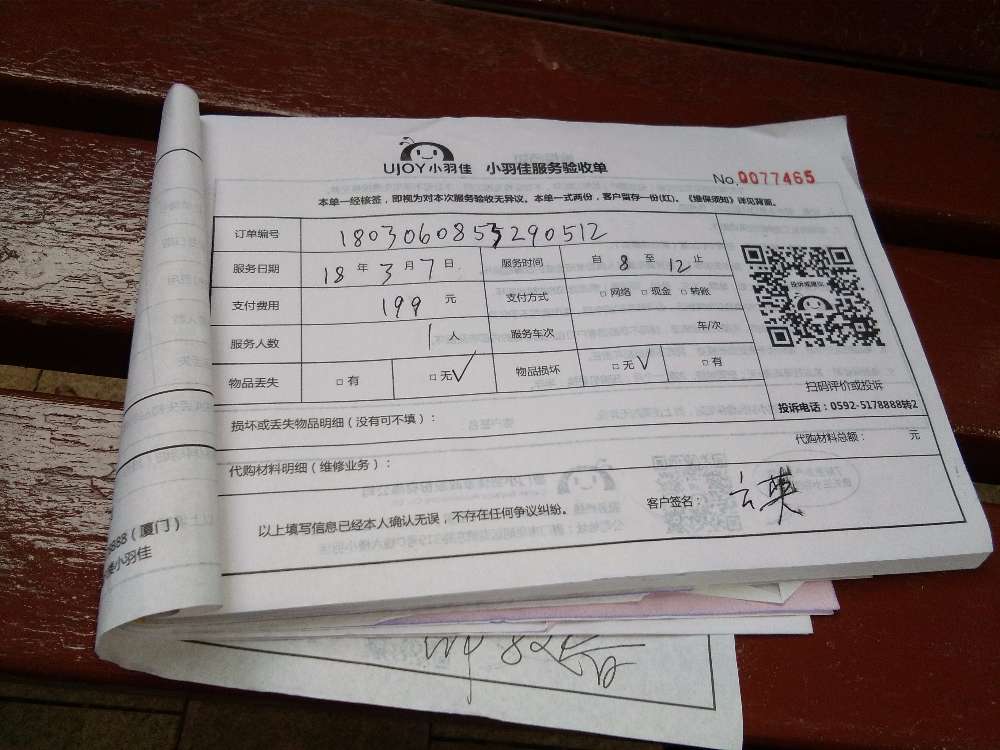 UJOY小羽佳 小羽佳服务验收单
No.0077465
本单一经核签，即视为对本次服务验收无异议。本单一式两份，客户留存一份(红)。《维保须知》详见背面。
订单编号 1803060853290512
服务日期 18 年 3 月 7 日 服务时间 自 8 至 12 止
支付费用 199 元 支付方式 □网络 □现金 □转账
服务人数 1 人 服务车次 车/次
物品丢失 □有 □无√ 物品损坏 □无√ □有
扫码评价或投诉
投诉电话：0592-5178888转2
损坏或丢失物品明细（没有可不填）：
代购材料明细（维修业务）： 代购材料总额： 元
以上填写信息已经本人确认无误，不存在任何争议纠纷。 客户签名：
8888（厦门）
小羽佳